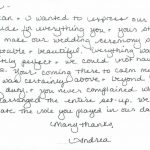 & I wanted to express our
for everything you & your st
make our wedding ceremony
& beautiful. Everything wa
perfect & we could not hav
Your coming there to calm me
was certainly above & beyond
duty & you never complained wh
rearranged the entire set-up. We
the role you played in our da
Many thanks
Andrea